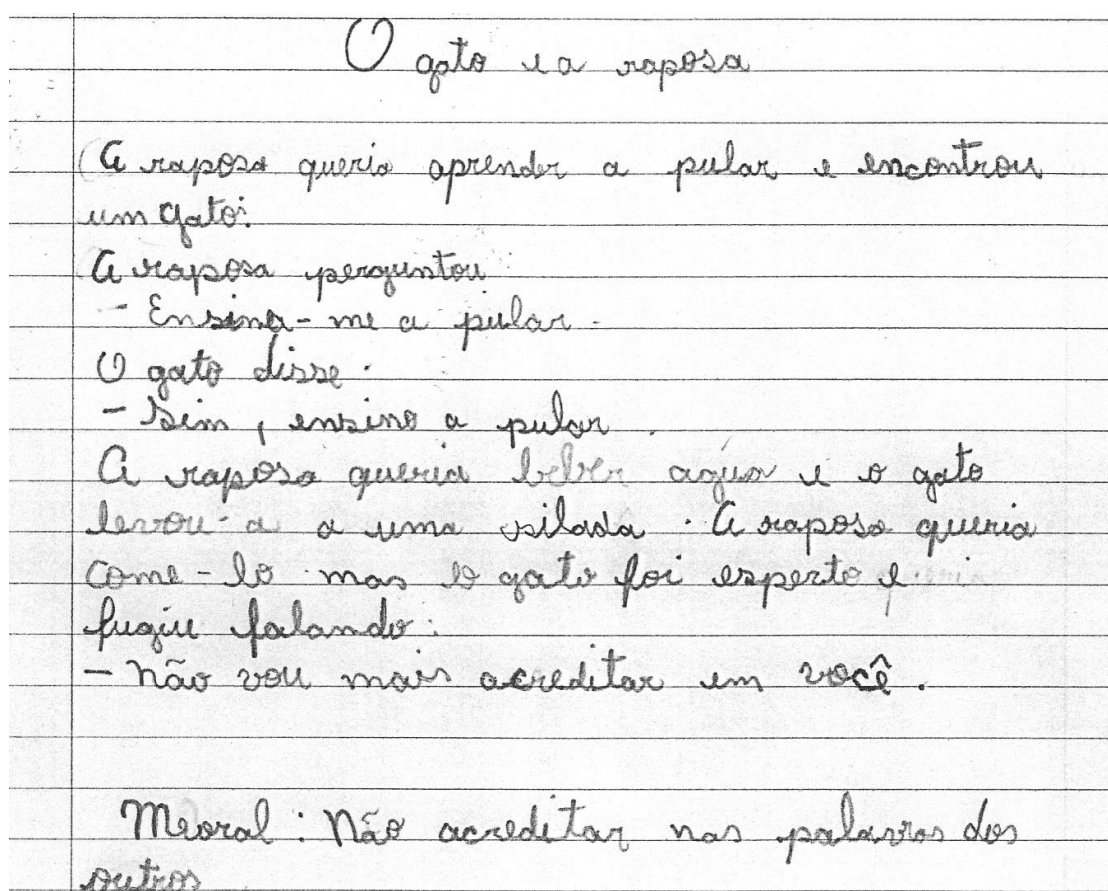 O gato e a raposa
A raposa queria aprender a pular e encontrou
um gato:
A raposa perguntou
- Ensina-me a pular.
O gato disse.
- Sim, ensino a pular.
A raposa queria beber agua e o gato
levou-a a uma silada. A raposa queria
come-lo mas o gato foi esperto e
fugiu falando:
- não vou mais acreditar em você.
Meoral: Não acreditar nas palavras dos
outros